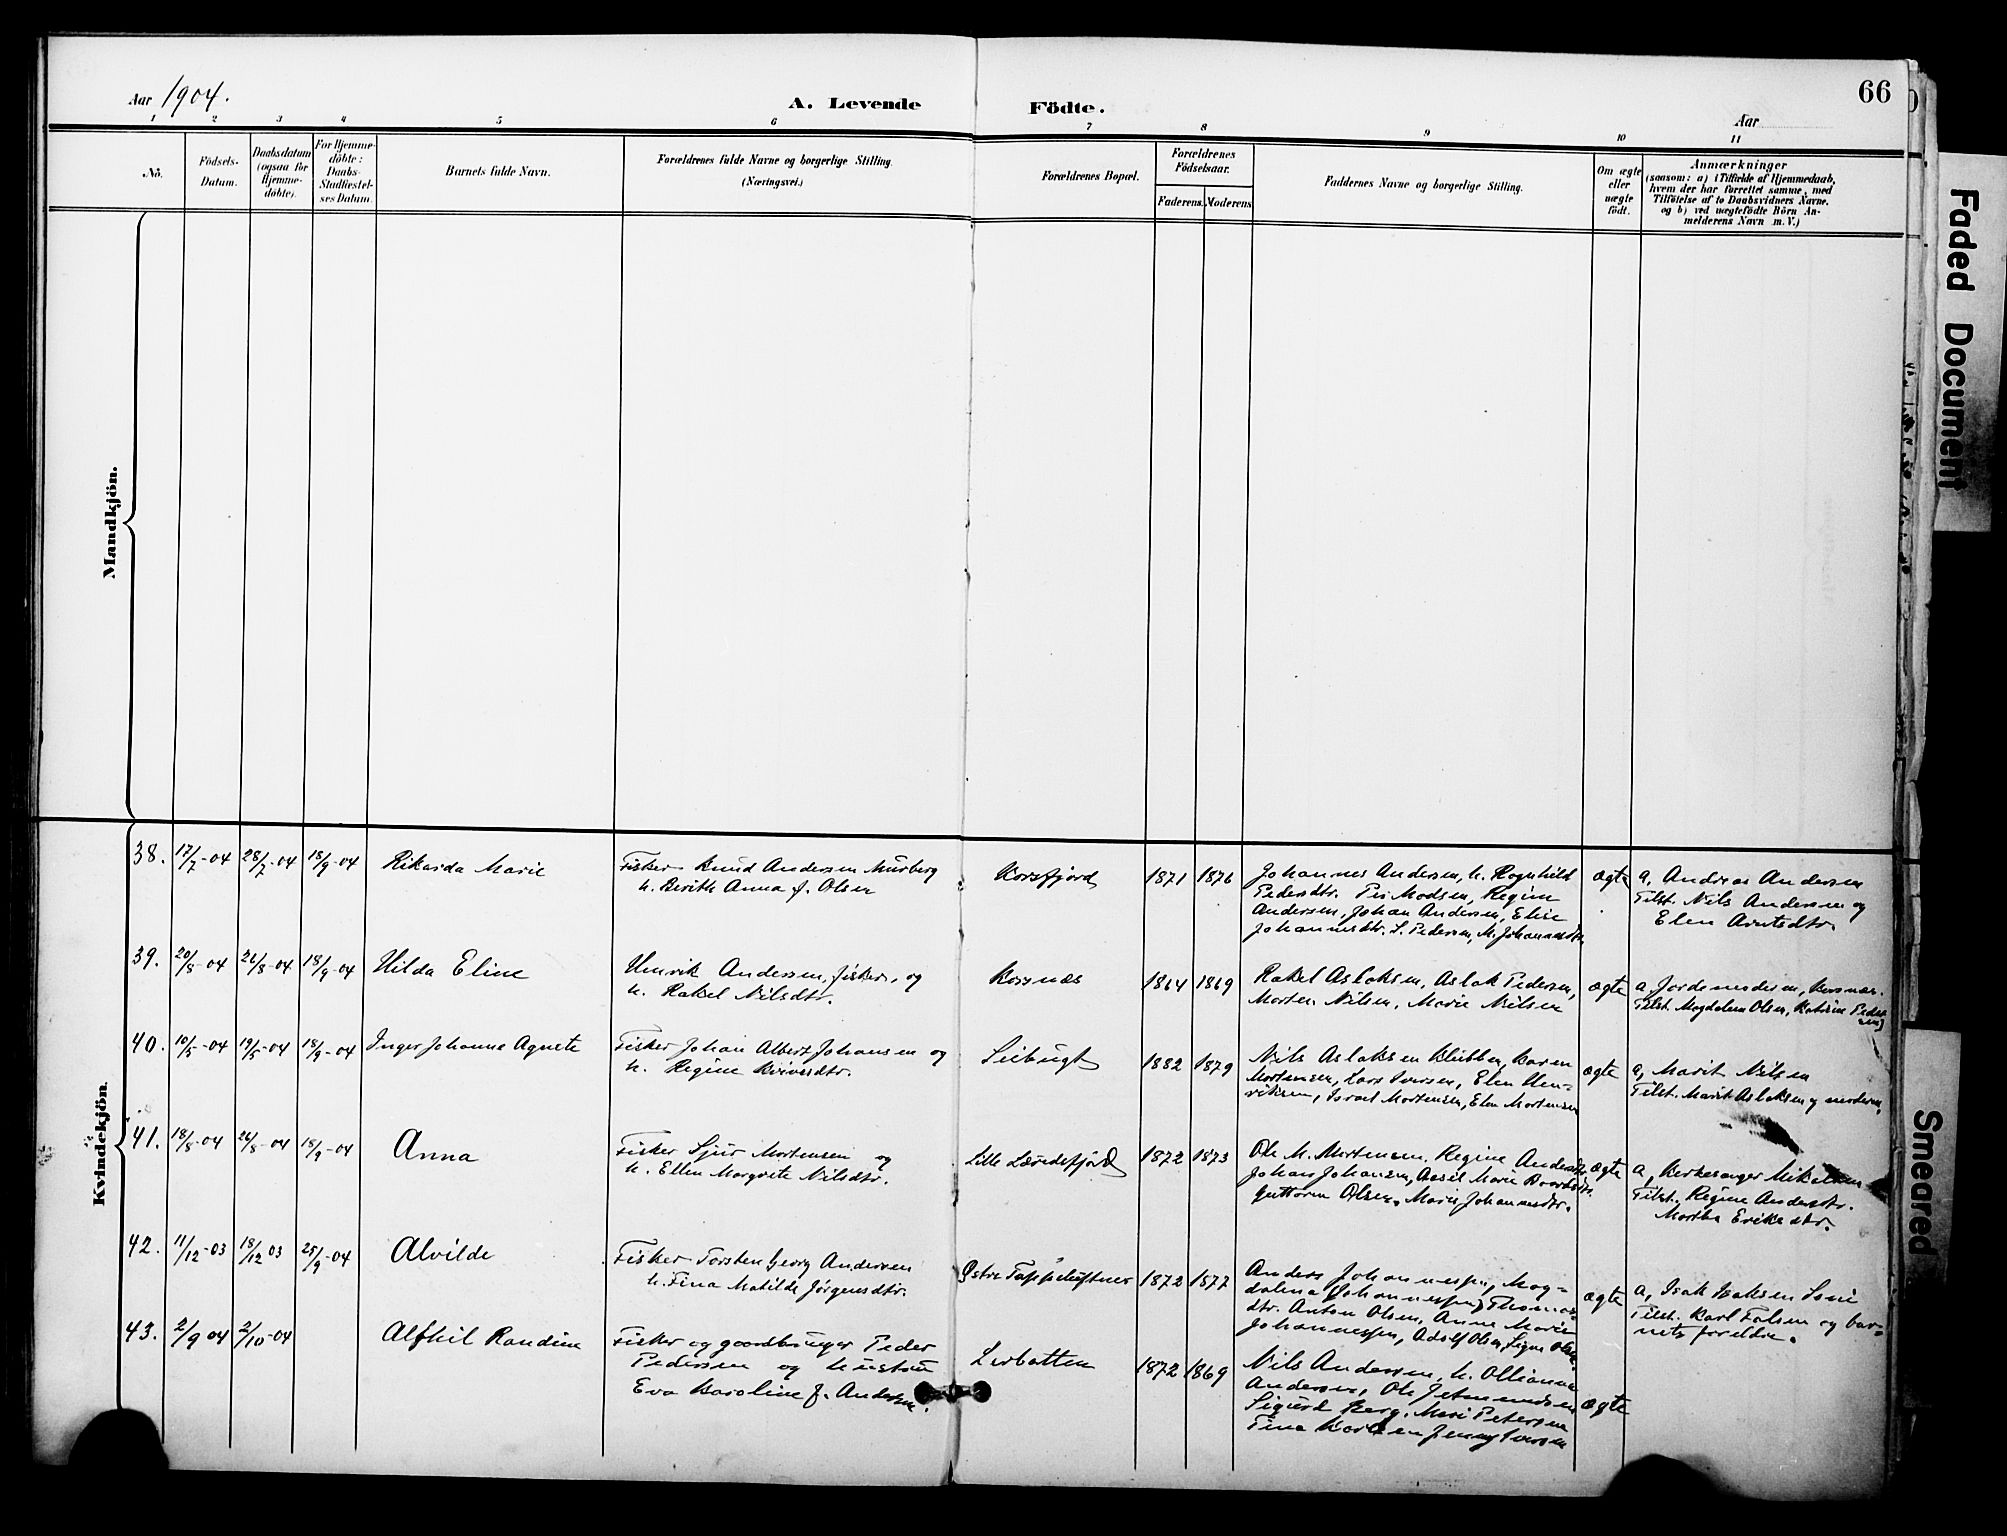 66
Aar 1904.
A. Levende Födte.
Aar
1 2 3 4 5 6 7 8 9 10 11
No.
Födsels-Datum.
Daabsdatum (ogsaa for Hjemme-döbte).
For Hjemme-döbte: Daabs-Stadfæstel-ses Datum.
Barnets fulde Navn.
Forældrenes fulde Navne og borgerlige Stilling.
(Næringsvei.)
Forældrenes Bopæl.
Forældrenes Födselsaar.
Faderens. Moderens
Faddernes Navne og borgerlige Stilling.
Om ægte eller uægte födt.
Anmærkninger
(saasom: a) i Tilfælde af Hjemmedaab,
hvem der har forrettet samme, med
Tilföielse af to Daabsvidners Navne.
og b) ved uægtefödte Börn An-
melderens Navn m. V.)
Mandkjön.
Kvindekjön.
38. 17/7-04 28/7-04 18/9-04 Rikarda Marie
Fisker Knud Andersen Murberg
h. Berith Anna f. Olsen
Korsfjord 1871 1876
Johannes Andersen, h. Ragnhild
Pedersdtr. Per Madsen, Regine
Andersen, Johan Andersen, Elise
Johannesdtr. L. Pedersen, M. Johannesdtr.
ægte
a, Andreas Andersen
Tilst. Nils Andersen og
Elen Arntsdtr.
39. 20/8-04 26/8-04 18/9-04 Hilda Eline
Henrik Andersen, fisker, og
h. Rakel Nilsdtr.
Korsnæs 1864 1869
Rakel Aslaksen, Aslak Pedersen,
Morten Nilsen, Marie Nilsen
ægte
a, Jordemoderen, Korsnæs.
Tilst. Magdalena Olsen, Katrine Peder-
sen
40. 10/5-04 19/5-04 18/9-04 Inger Johanne Agnete
Fisker Johan Albert Johansen og
h. Regine
1882 1879
Nils Aslaksen Klubben, Karen
Mortensen, Lars Iversen, Elen Hen-
riksen, Israel Mortensen, Elen Mortensen
ægte
a, Marit Nilsen
Tilst. Marit Aslaksen og moderen.
41. 18/8-04 26/8-04 18/9-04 Anna
Fisker Sjur Mortensen og
h. Ellen Margrete Nilsdtr.
Lille Lærredsfjord 1872 1873
Ole M. Mortensen, Regine Andersdtr.
Johan Johansen, Marie
Guttorm Olsen, Marie Johannesdtr.
ægte
a, Kirkesanger Mikalsen
Tilst. Regine Andersdtr.
Martha Eriksdtr.
42. 11/12-03 18/12 03 25/9-04 Alvilde
Fisker Torsten Georg Andersen
h. Fina Matilde Jørgensdtr.
Østre Tappeluftnes 1872 1877
Anders Johannessen, Mag-
dalena Johannessen, Thomas-
dtr. Anton Olsen, Anne Marie
Johannessen, Adolf Olsen, Signe Olsen
ægte
a, Isak Isaksen
Tilst. Karl Falsen og bar-
nets foreldre.
43. 2/9 04 2/10-04 Alfhil Randine
Fisker og gaardbruger Peder
Pedersen og hustru
Eva Karoline f. Andersen.
Lerbotten 1872 1869
Nils Andersen, h. Ollianna
Andersen, Ole
Sigurd Berg, Petersen
Tina Karlsen Jenny Iversen
ægte
Faded Document
Smeared